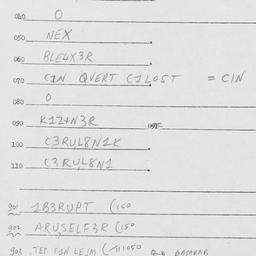 040 O
050 NEX
060 BLE4X3R
070 C1N QVERT C1LOST = C1N
080 O
090 K1Z+N3R
100 C3RUL8N1K
110 C3RUL8N1
901 1B3RUPT (150
902 ARUSELF3R (150
903 TEP F1N LE1M